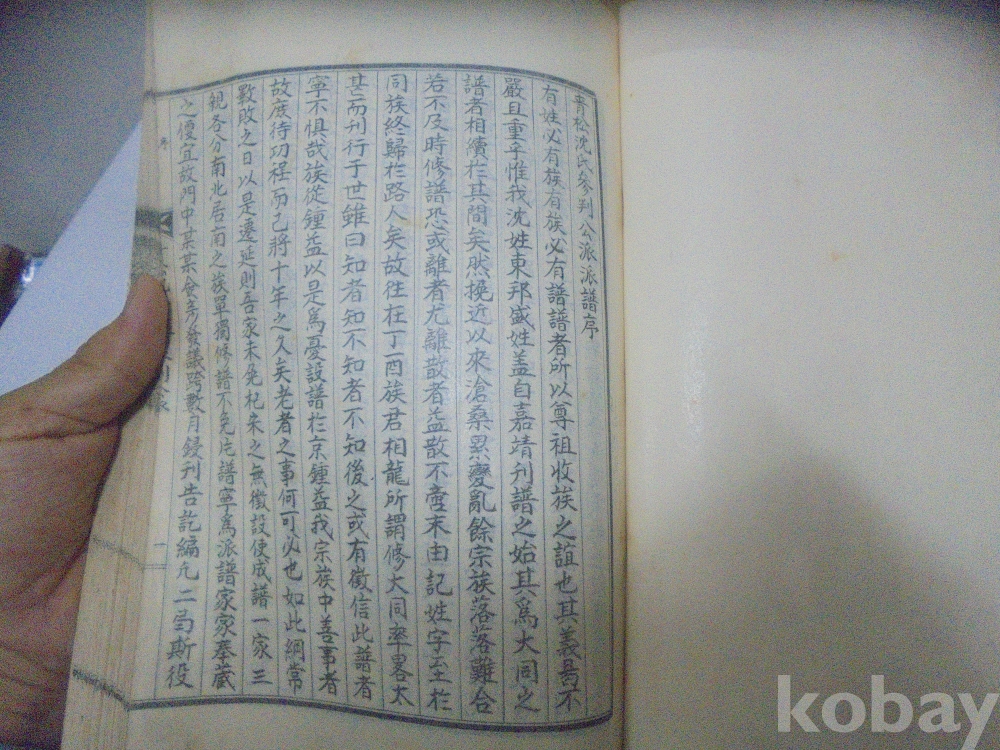 青松沈氏參判公派派譜序
有姓必有族有族必有譜譜者所以尊祖收族之誼也其義曷不
嚴且重乎惟我沈姓東邦盛姓盖自嘉靖刊譜之始其爲大同之
譜者相續於其間矣然挽近以來滄桑累變亂餘宗族落落難合
若不及時修譜恐或離者尤離散者益散不啻末由記姓字至於
同族終歸於路人矣故往在丁酉族君相龍所謂修大同率畧太
甚而刊行于世雖曰知者知不知者不知後之或有徵信此譜者
寧不惧哉族從鍾益以是爲憂設譜於京鍾益我宗族中善事者
故庶待功程而已將十年之久矣老者之事何可必也如此綱常
斁敗之日以是遷延則吾家未免杞宋之無徵設使成譜一家三
親各分南北居南之族單獨修譜不免片譜寧爲派譜家家奉藏
之便宜故門中某某發議跨數月鋟刊告訖編九二局斯役
序
一
kobay